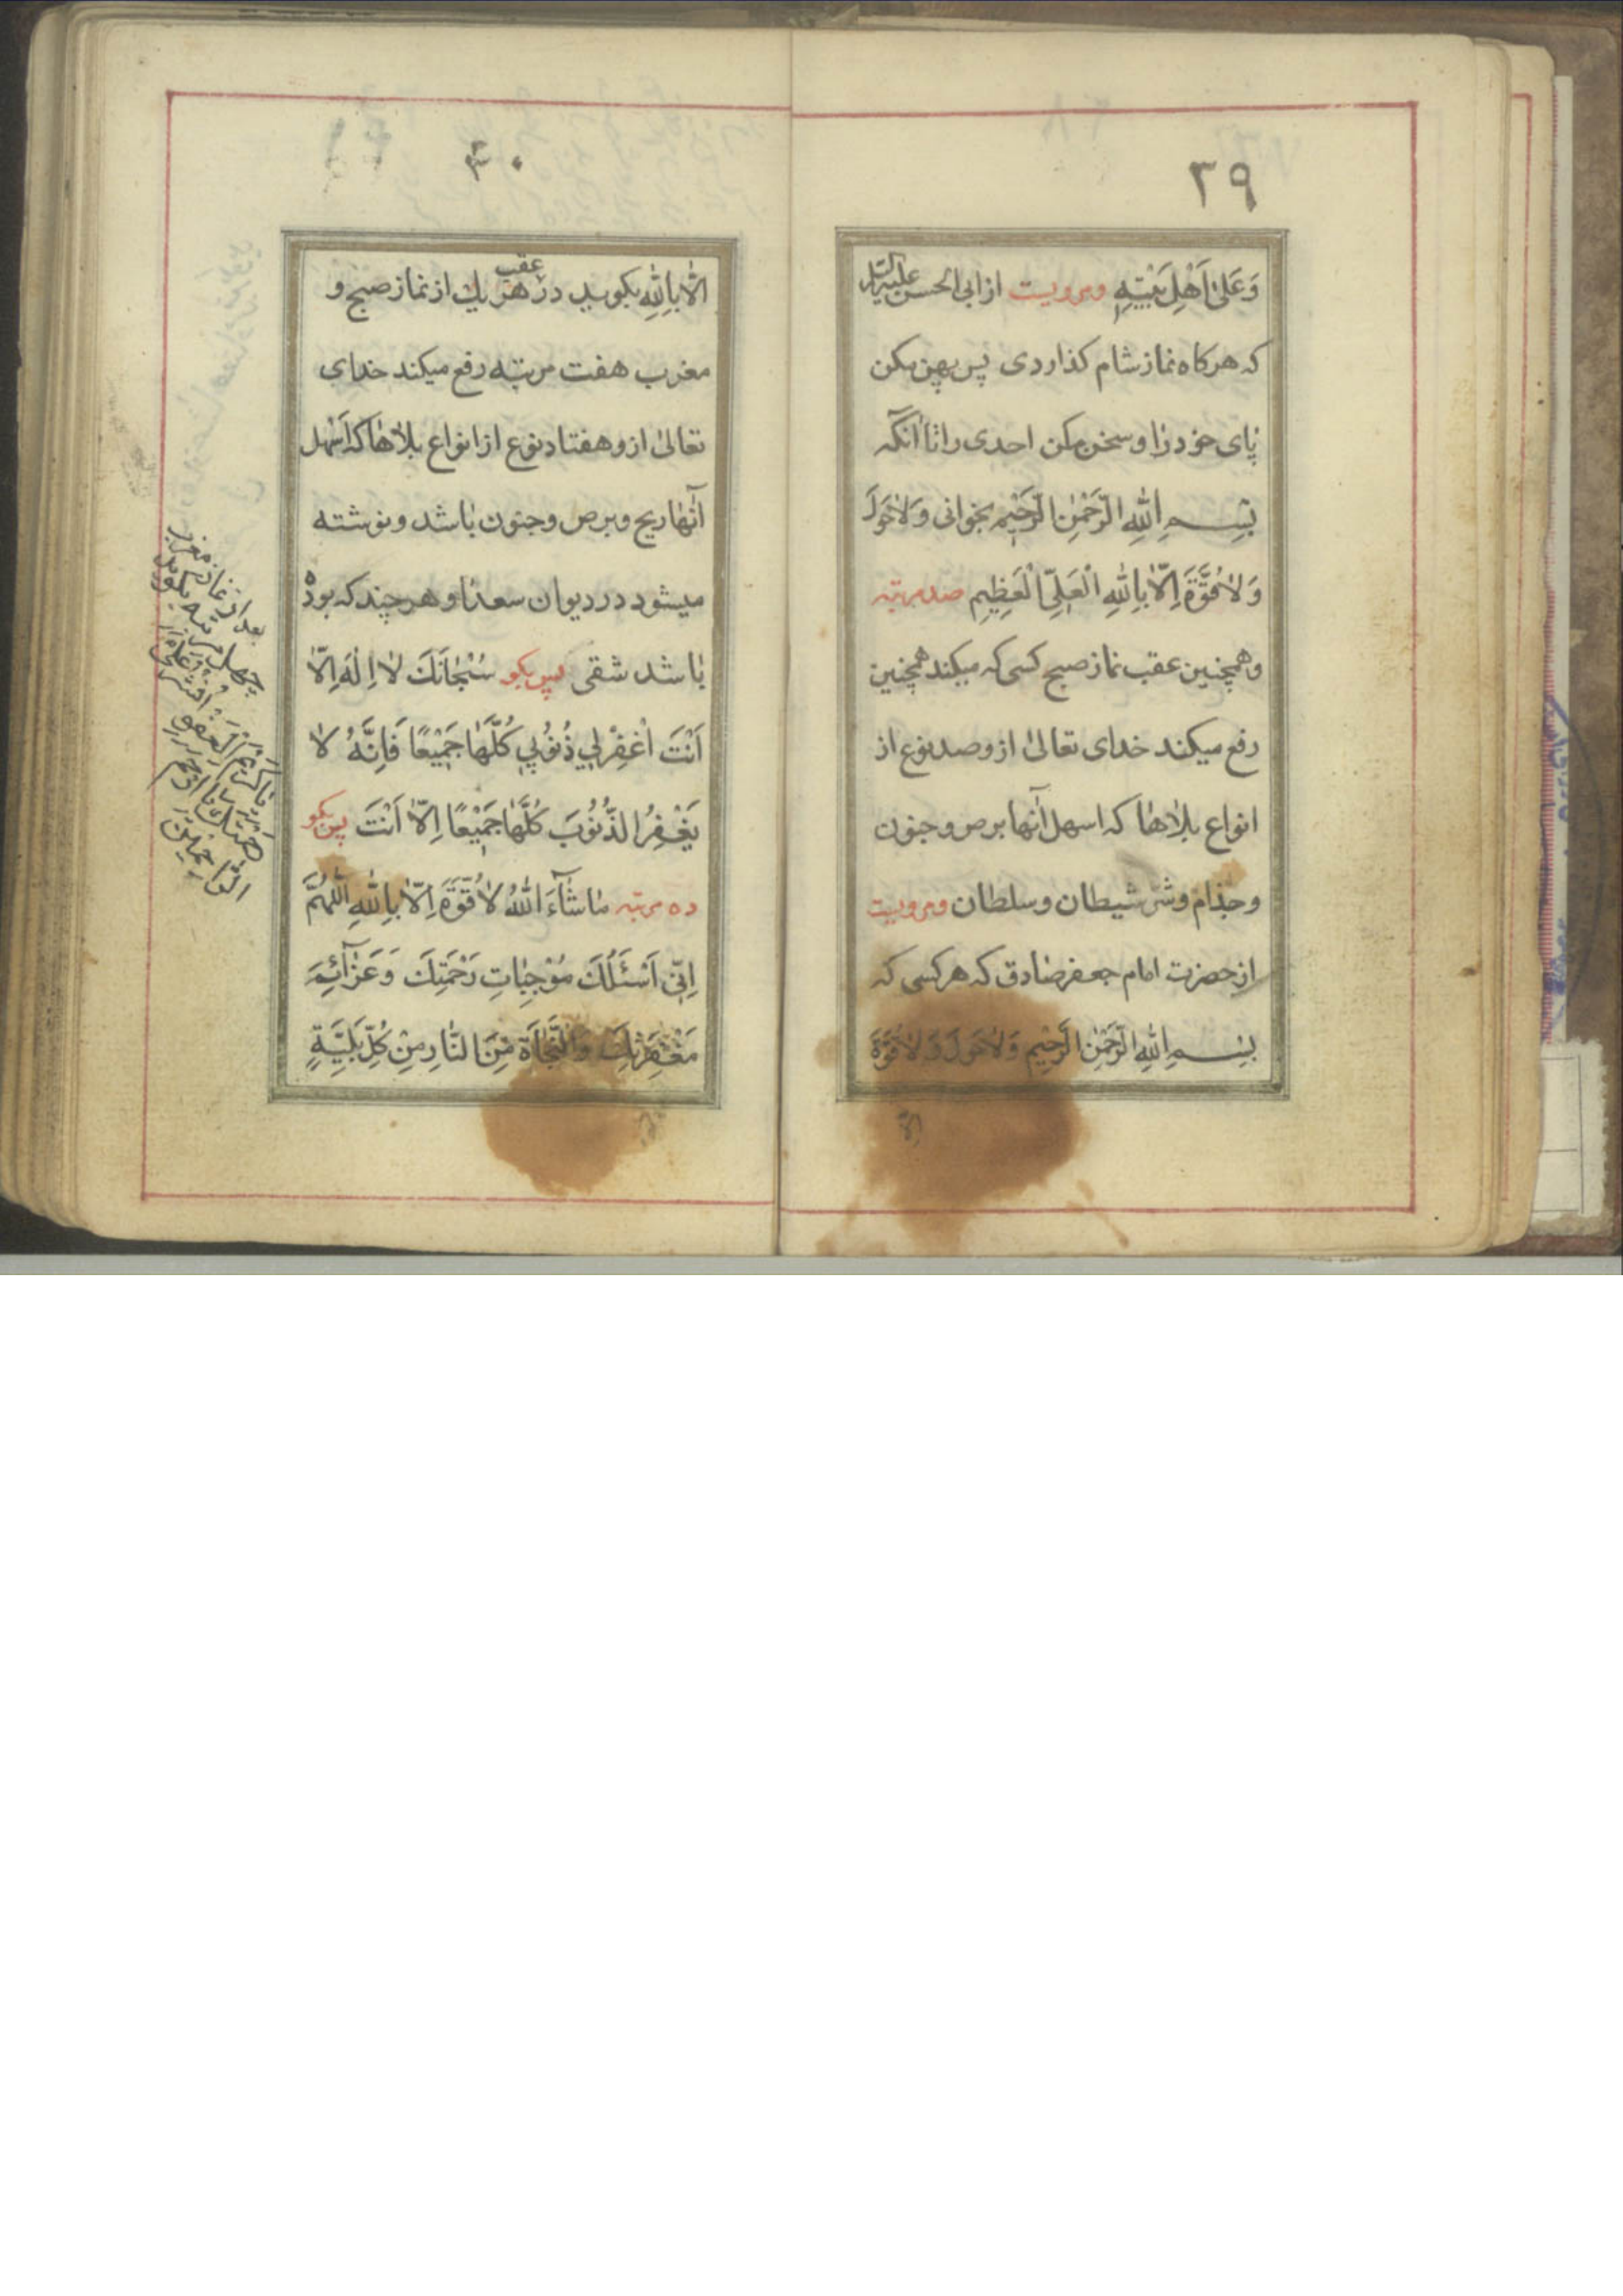 ٢٩
وَعَلىٰ اَهْلِ بَيْتِهِ ومرويست از ابى الحسن عليه السلام
كه هركاه نماز شام كذاردى پس پهن مكن
پاى خود را و سخن مكن احدى را تا آنكه
بِسْمِ اللهِ الرَّحْمٰنِ الرَّحِيْمِ بخوانى وَلاٰ حَوْلَ
وَلاٰ قُوَّةَ اِلّاٰ بِاللهِ الْعَلِيِّ الْعَظِيْمِ صد مرتبه
وهمچنين عقب نماز صبح كسى كه ميكند همچنين
رفع ميكند خداى تعالىٰ ازو صد نوع از
انواع بلاٰها كه اسهل آنها برص و جنون
وجذام وشر شيطان وسلطان ومرويست
از حضرت امام جعفر صادق كه هركسى كه
بِسْمِ اللهِ الرَّحْمٰنِ الرَّحِيْمِ وَلاٰ حَوْلَ وَلاٰ قُوَّةَ
الّا
٣٠
الّاٰ بِاللهِ بكويد در عقب هر يك از نماز صبح و
مغرب هفت مرتبه رفع ميكند خداى
تعالىٰ ازو هفتاد نوع از انواع بلاٰها كه اَسْهل
آنها ريح و برص و جنون باشد و نوشته
ميشود در ديوان سعدا و هر چند كه بوده
باشد شقى پس بكو سُبْحٰانَكَ لاٰ اِلٰهَ اِلّاٰ
اَنْتَ اغْفِرْلِي ذُنُوْبِي كُلَّهٰا جَمِيْعًا فَاِنَّهُ لاٰ
يَغْفِرُ الذُّنُوْبَ كُلَّهٰا جَمِيْعًا اِلّاٰ اَنْتَ پس بكو
ده مرتبه مٰا شٰآءَ اللهُ لاٰ قُوَّةَ اِلّاٰ بِاللهِ اَللّٰهُمَّ
اِنّي اَسْئَلُكَ مُوْجِبٰاتِ رَحْمَتِكَ وَعَزٰآئِمَ
مَغْفِرَتِكَ وَالنَّجٰاةَ مِنَ النّٰارِ مِنْ كُلِّ بَلِيَّةٍ
بعد از نماز مغرب
چهل مرتبه بكويد
يا كريم العفو
الراحمين